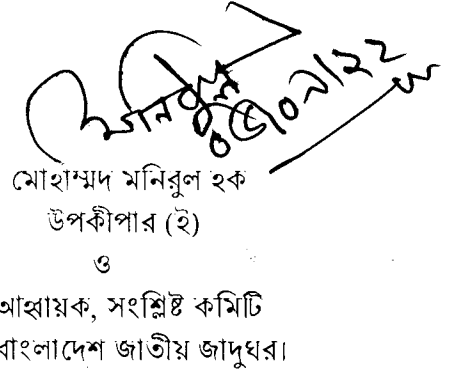 মনিরুল
০৫/০৯/২২
মোহাম্মদ মনিরুল হক
উপকীপার (ই)
ও
আহ্বায়ক, সংশ্লিষ্ট কমিটি
বাংলাদেশ জাতীয় জাদুঘর।